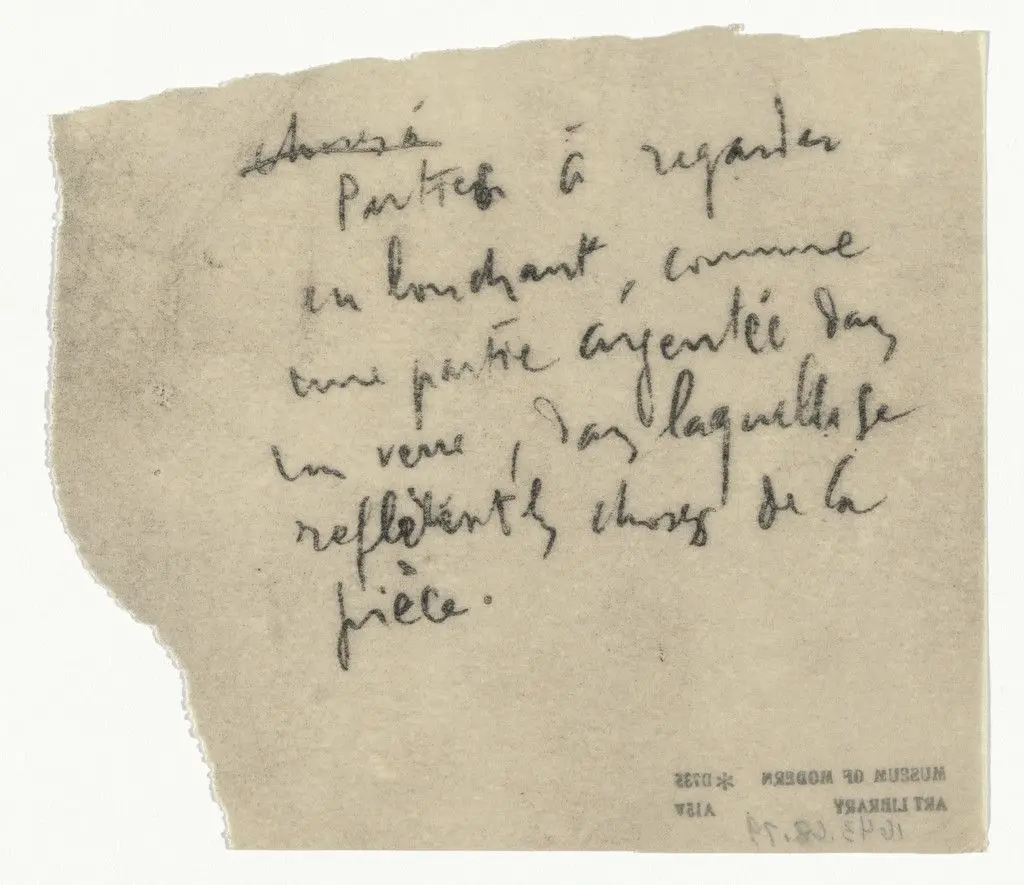 choses à
Parties à regarder
en louchant, comme
une partie argentée dans
un verre, dans laquelle se
reflètent les choses de la
pièce.
MUSEUM OF MODERN *D735
ART LIBRARY A157
1643.68.79